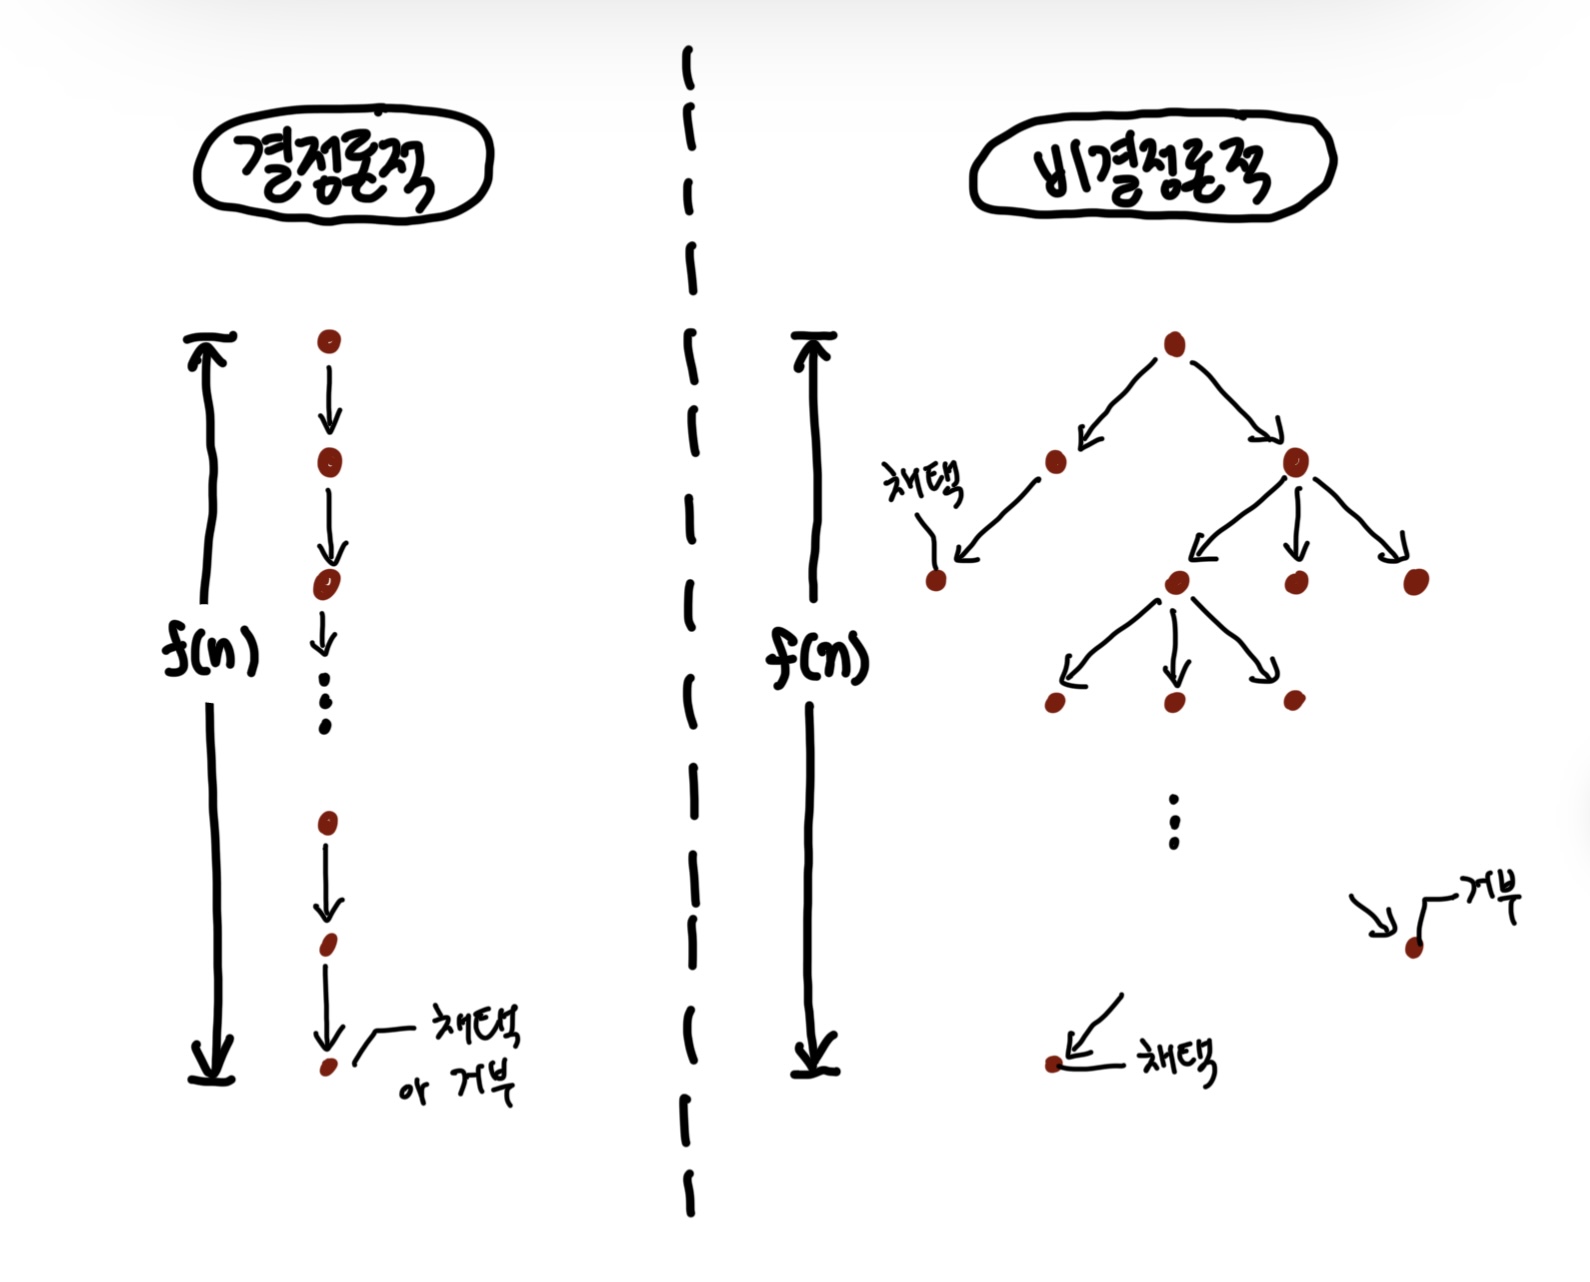 결정론적
f(n)
채택
or 거부
비결정론적
채택
f(n)
거부
채택